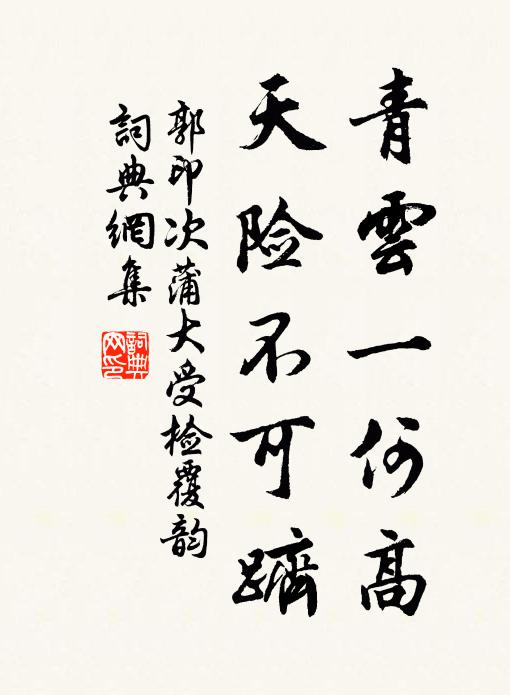 青雲一何高
天险不可躋
郭印次蒲大受检覆韵
詞典網集
詞典網印